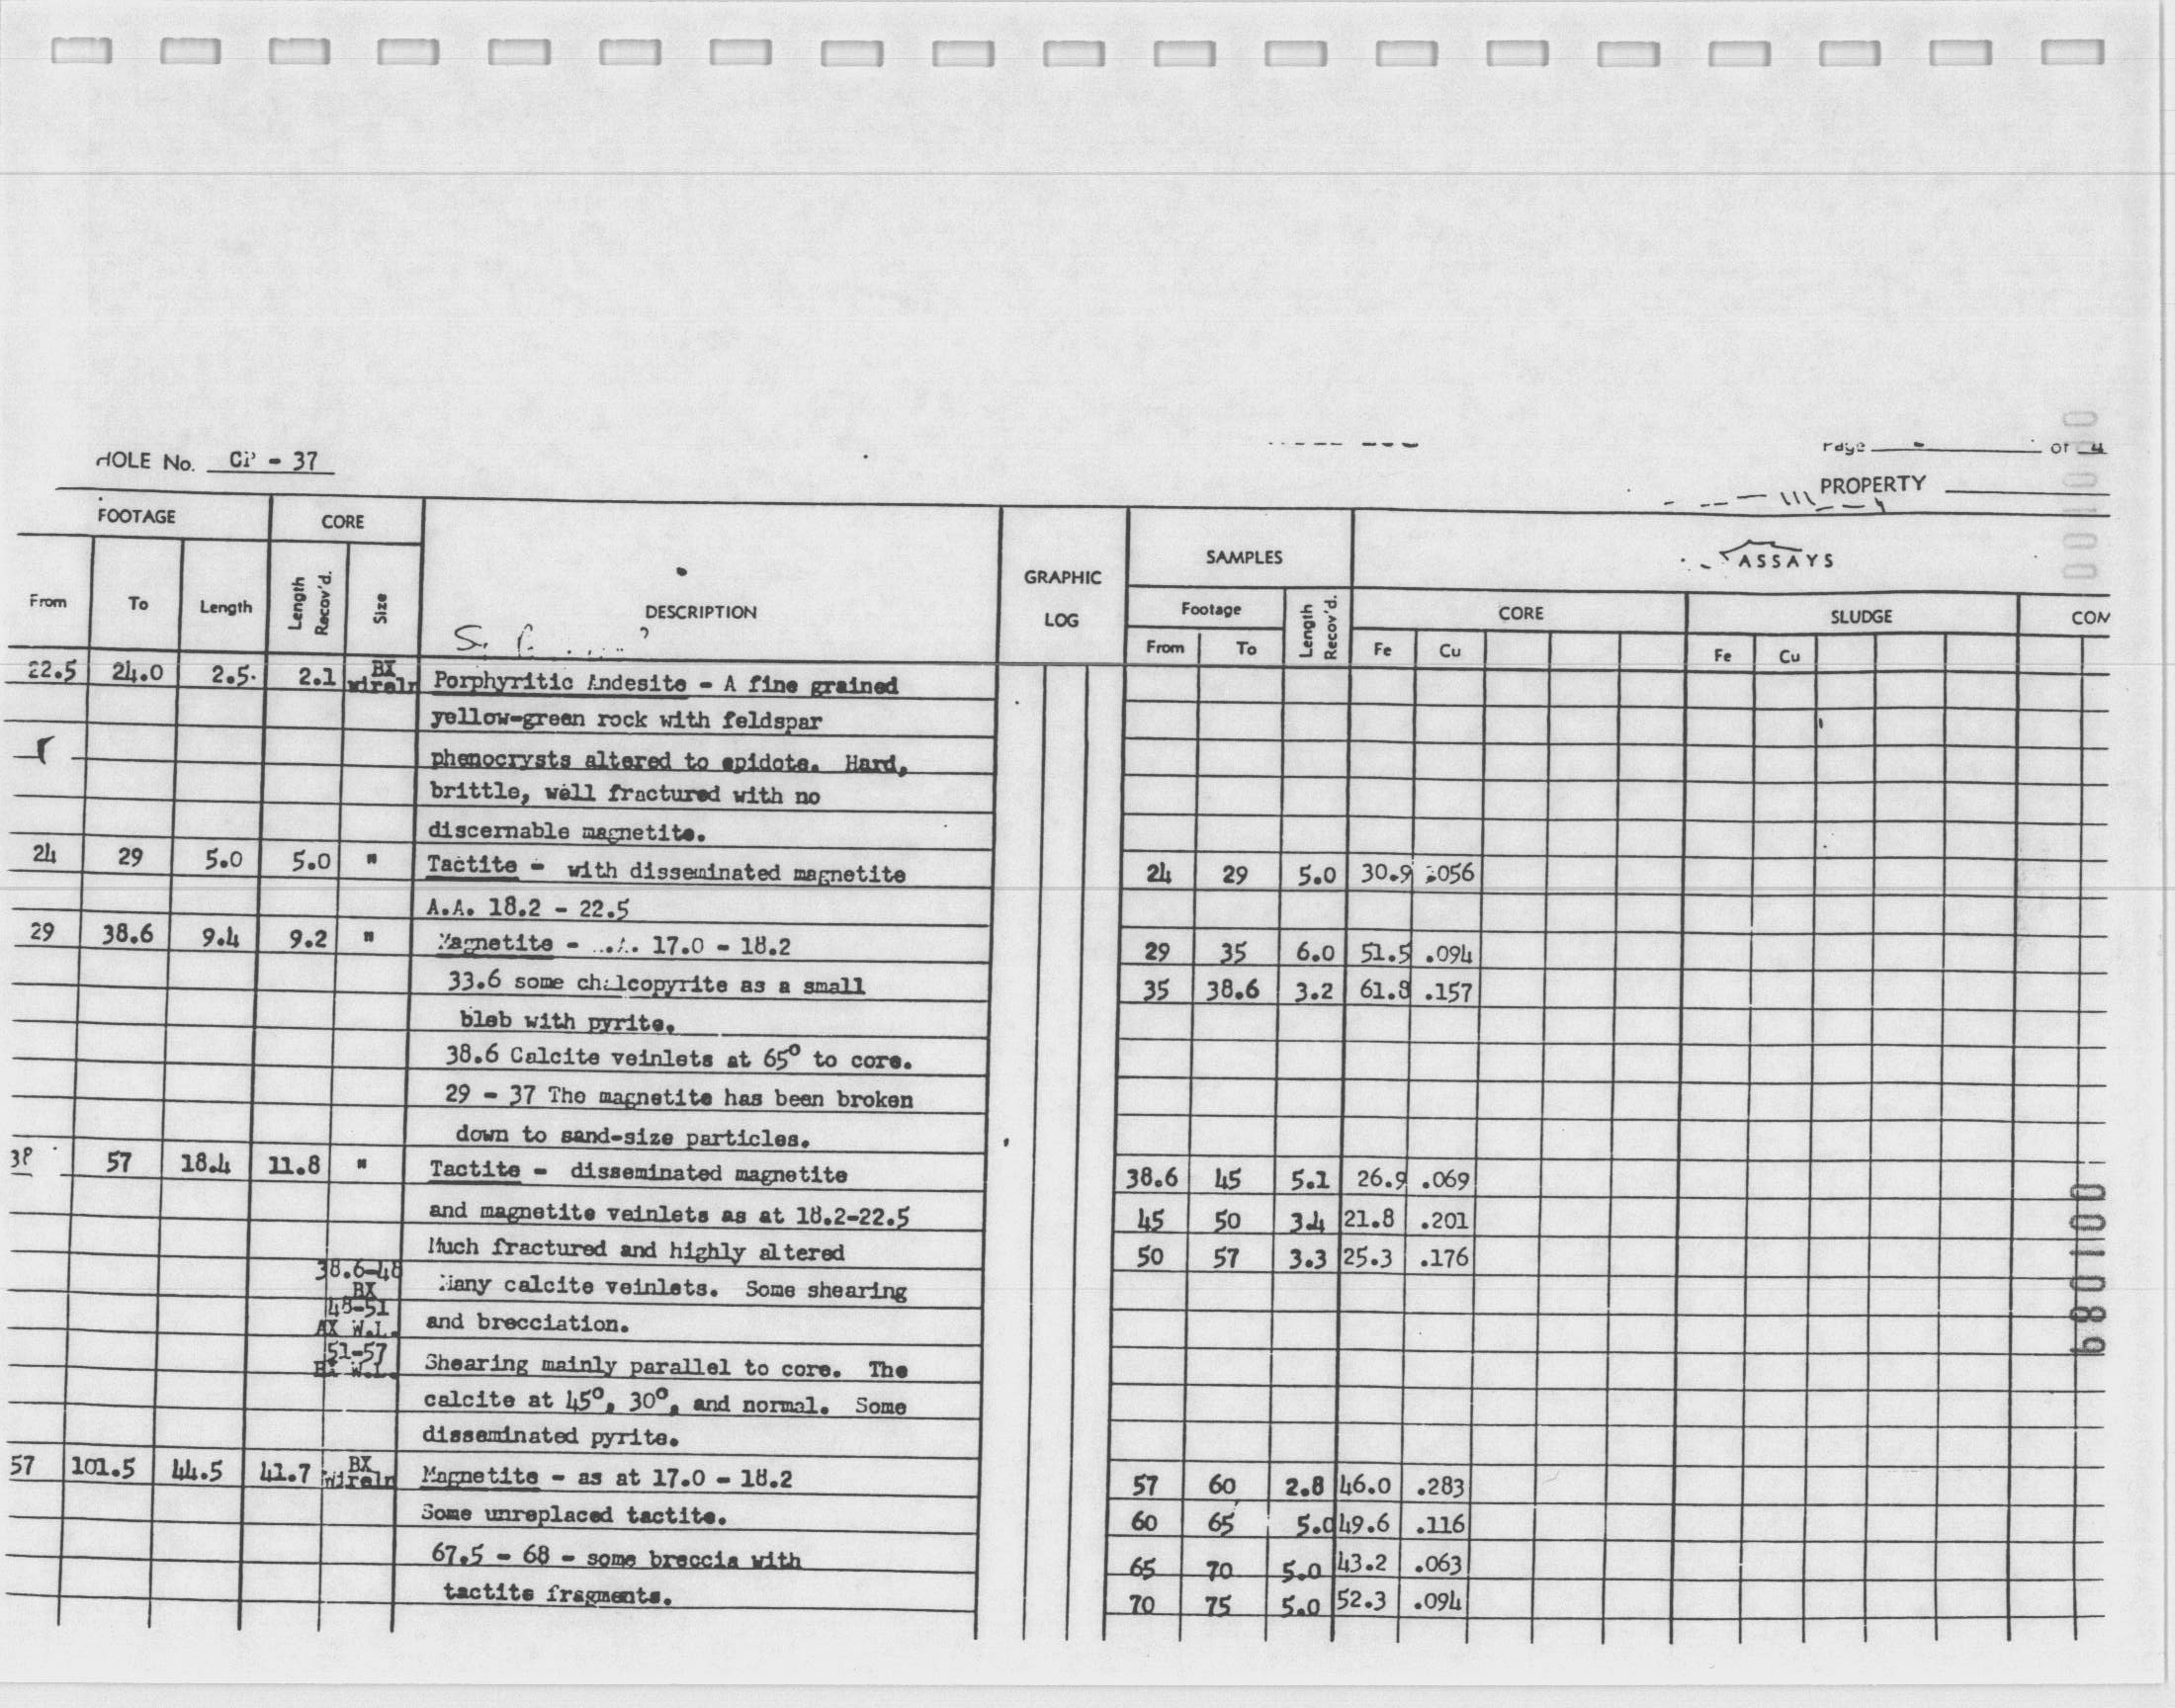 HOLE No. CP - 37
Page of 4
PROPERTY
FOOTAGE CORE DESCRIPTION GRAPHIC LOG SAMPLES ASSAYS
From To Length Length Recov'd. Size Footage Length Recov'd. CORE SLUDGE COM
From To Fe Cu Fe Cu
22.5 24.0 2.5 2.1 BX wireln Porphyritic Andesite - A fine grained
yellow-green rock with feldspar
phenocrysts altered to epidote. Hard,
brittle, well fractured with no
discernable magnetite.
24 29 5.0 5.0 " Tactite - with disseminated magnetite 24 29 5.0 30.9 .056
A.A. 18.2 - 22.5
29 38.6 9.4 9.2 " Magnetite - 17.0 - 18.2 29 35 6.0 51.5 .094
33.6 some chalcopyrite as a small 35 38.6 3.2 61.8 .157
bleb with pyrite.
38.6 Calcite veinlets at 65° to core.
29 - 37 The magnetite has been broken
down to sand-size particles.
38 57 18.4 11.8 " Tactite - disseminated magnetite 38.6 45 5.1 26.9 .069
and magnetite veinlets as at 18.2-22.5 45 50 3.4 21.8 .201
Much fractured and highly altered 50 57 3.3 25.3 .176
38.6-48 BX Many calcite veinlets. Some shearing
48-51 AX W.L. and brecciation.
51-57 BX W.L. Shearing mainly parallel to core. The
calcite at 45°, 30°, and normal. Some
disseminated pyrite.
57 101.5 44.5 41.7 BX Wireln Magnetite - as at 17.0 - 18.2 57 60 2.8 46.0 .283
Some unreplaced tactite. 60 65 5.0 49.6 .116
67.5 - 68 - some breccia with 65 70 5.0 43.2 .063
tactite fragments. 70 75 5.0 52.3 .094
001089